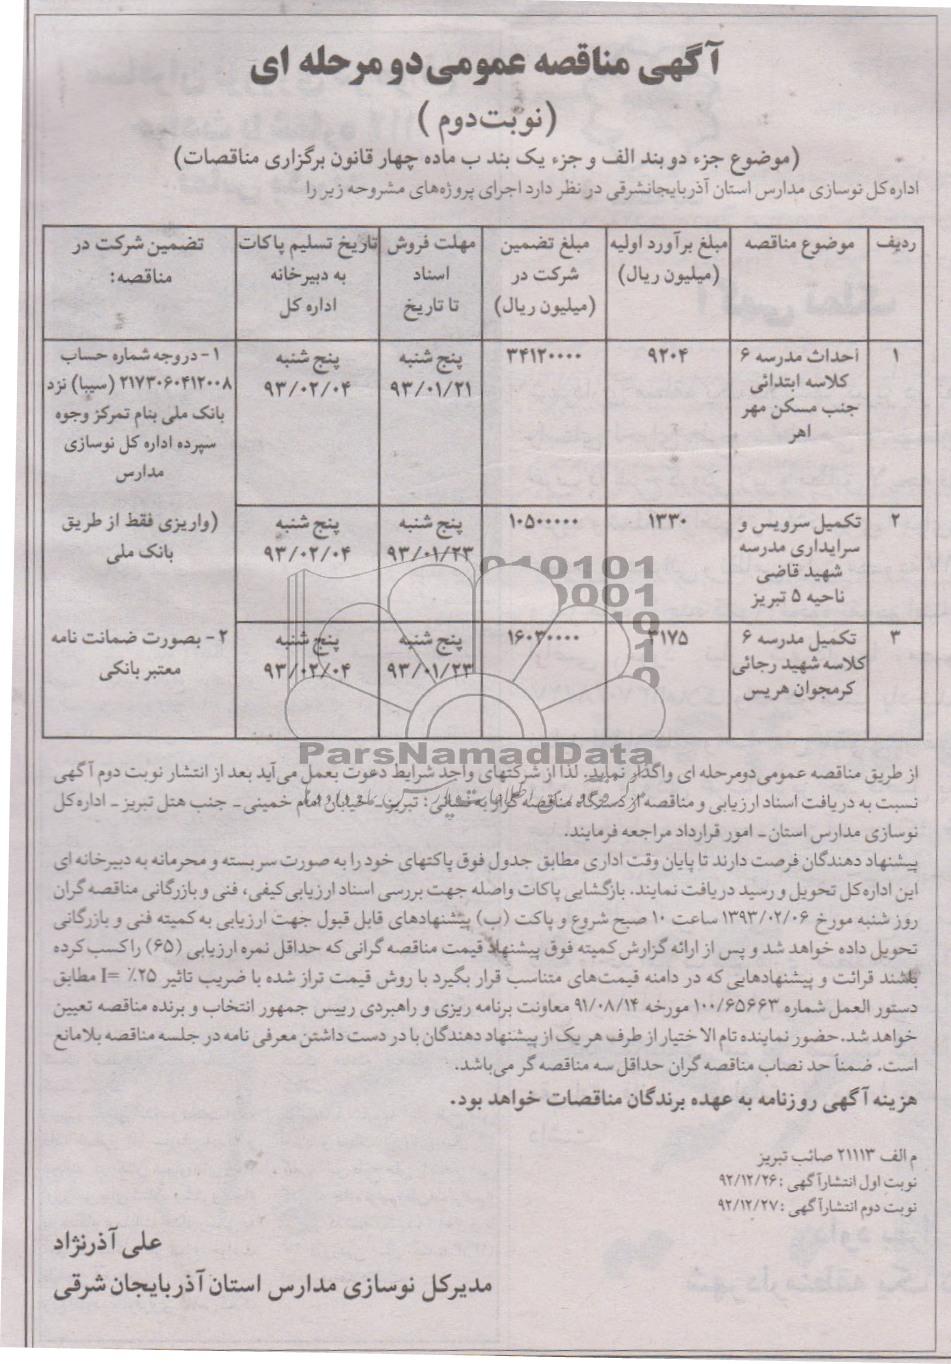 آگهی مناقصه عمومی دو مرحله ای
(نوبت دوم)
(موضوع جزء دو بند الف و جزء یک بند ب ماده چهار قانون برگزاری مناقصات)
اداره کل نوسازی مدارس استان آذربایجانشرقی در نظر دارد اجرای پروژه‌های مشروحه زیر را
ردیف | موضوع مناقصه | مبلغ برآورد اولیه (میلیون ریال) | مبلغ تضمین شرکت در (میلیون ریال) | مهلت فروش اسناد تا تاریخ | تاریخ تسلیم پاکات به دبیرخانه اداره کل | تضمین شرکت در مناقصه:
۱ | احداث مدرسه ۶ کلاسه ابتدائی جنب مسکن مهر اهر | ۹۲۰۴ | ۳۴۱۲۰۰۰۰ | پنج شنبه ۹۳/۰۱/۲۱ | پنج شنبه ۹۳/۰۲/۰۴ | ۱- در وجه شماره حساب ۲۱۷۳۰۶۰۴۱۲۰۰۸ (سیبا) نزد بانک ملی بنام تمرکز وجوه سپرده اداره کل نوسازی مدارس
۲ | تکمیل سرویس و سرایداری مدرسه شهید قاضی ناحیه ۵ تبریز | ۱۳۳۰ | ۱۰۵۰۰۰۰۰ | پنج شنبه ۹۳/۰۱/۲۳ | پنج شنبه ۹۳/۰۲/۰۴ | (واریزی فقط از طریق بانک ملی
۳ | تکمیل مدرسه ۶ کلاسه شهید رجائی کرمجوان هریس | ۳۱۷۵ | ۱۶۰۳۰۰۰۰ | پنج شنبه ۹۳/۰۱/۲۳ | پنج شنبه ۹۳/۰۲/۰۴ | ۲- بصورت ضمانت نامه معتبر بانکی
ParsNamadData
از طریق مناقصه عمومی دومرحله ای واگذار نماید. لذا از شرکتهای واجد شرایط دعوت بعمل می‌آید بعد از انتشار نوبت دوم آگهی
نسبت به دریافت اسناد ارزیابی و مناقصه از دستگاه مناقصه گزار به نشانی: تبریز- خیابان امام خمینی- جنب هتل تبریز- اداره کل
نوسازی مدارس استان- امور قرارداد مراجعه فرمایند.
پیشنهاد دهندگان فرصت دارند تا پایان وقت اداری مطابق جدول فوق پاکتهای خود را به صورت سربسته و محرمانه به دبیرخانه ای
این اداره کل تحویل و رسید دریافت نمایند. بازگشایی پاکات واصله جهت بررسی اسناد ارزیابی کیفی، فنی و بازرگانی مناقصه گران
روز شنبه مورخ ۱۳۹۳/۰۲/۰۶ ساعت ۱۰ صبح شروع و پاکت (ب) پیشنهادهای قابل قبول جهت ارزیابی به کمیته فنی و بازرگانی
تحویل داده خواهد شد و پس از ارائه گزارش کمیته فوق پیشنهاد قیمت مناقصه گرانی که حداقل نمره ارزیابی (۶۵) را کسب کرده
باشند قرائت و پیشنهادهایی که در دامنه قیمت‌های متناسب قرار بگیرد با روش قیمت تراز شده با ضریب تاثیر ۲۵٪ =I مطابق
دستور العمل شماره ۱۰۰/۶۵۶۶۳ مورخه ۹۱/۰۸/۱۴ معاونت برنامه ریزی و راهبردی رییس جمهور انتخاب و برنده مناقصه تعیین
خواهد شد. حضور نماینده تام الاختیار از طرف هر یک از پیشنهاد دهندگان با در دست داشتن معرفی نامه در جلسه مناقصه بلامانع
است. ضمناً حد نصاب مناقصه گران حداقل سه مناقصه گر می‌باشد.
هزینه آگهی روزنامه به عهده برندگان مناقصات خواهد بود.
م الف ۲۱۱۱۳ صائب تبریز
نوبت اول انتشار آگهی: ۹۲/۱۲/۲۶
نوبت دوم انتشار آگهی: ۹۲/۱۲/۲۷
علی آذرنژاد
مدیرکل نوسازی مدارس استان آذربایجان شرقی